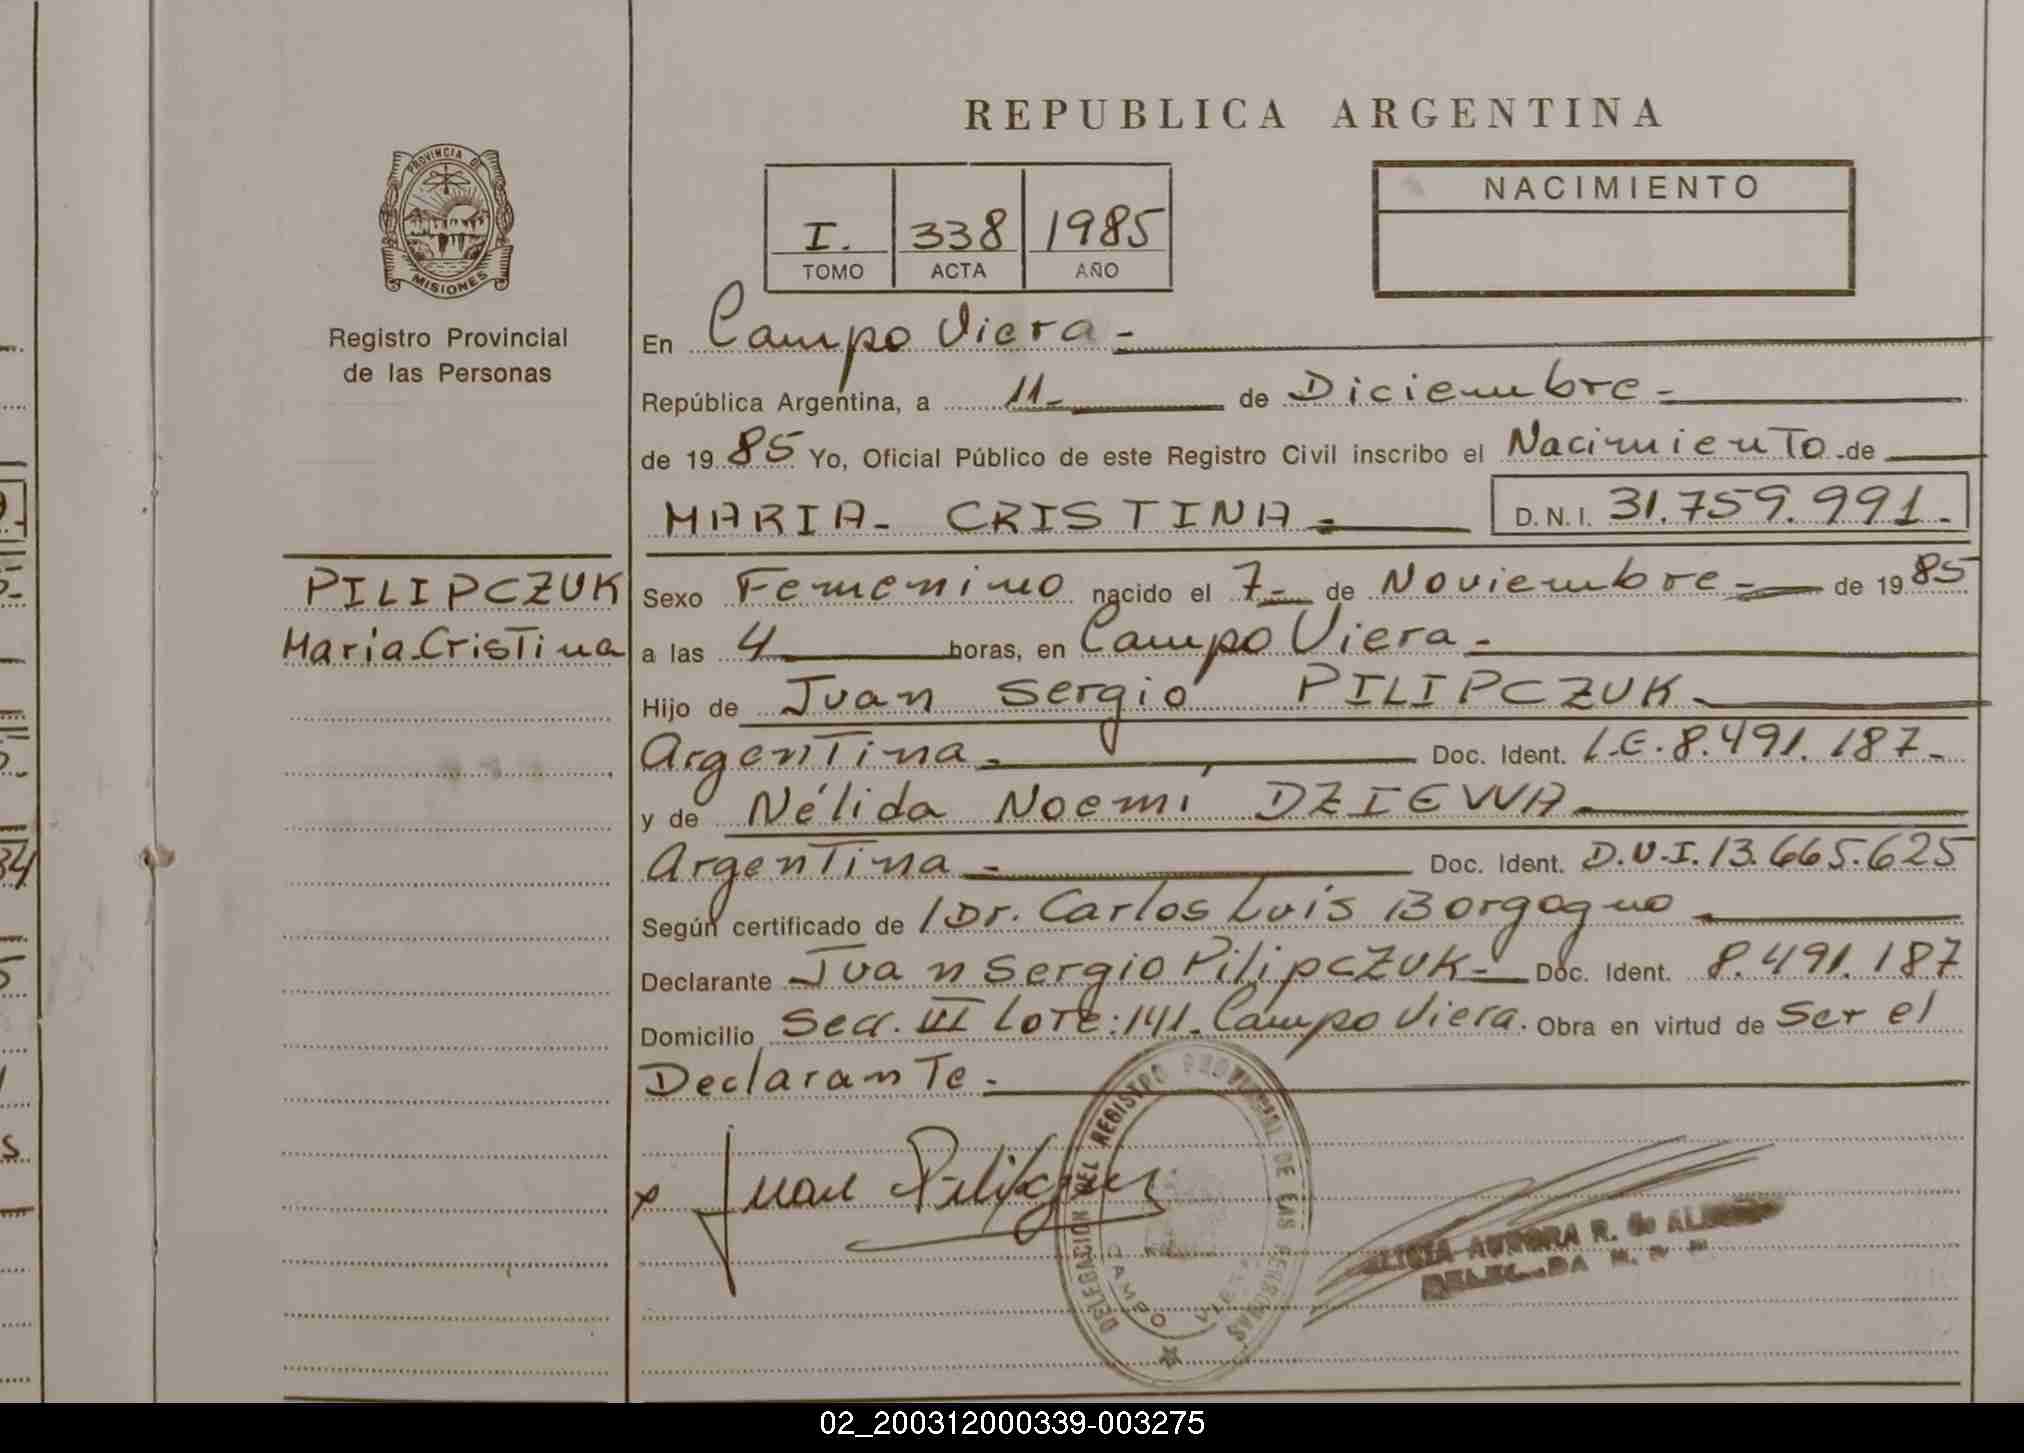 REPUBLICA ARGENTINA
PROVINCIA DE
MISIONES
Registro Provincial
de las Personas
I. 338 1985
TOMO ACTA AÑO
NACIMIENTO
En Campo Viera-
República Argentina, a 11- de Diciembre-
de 1985 Yo, Oficial Público de este Registro Civil inscribo el Nacimiento de
MARIA- CRISTINA- D.N.I. 31.759.991-
PILIPCZUK
María Cristina
Sexo Femenino nacido el 7- de Noviembre- de 1985
a las 4 horas, en Campo Viera-
Hijo de Juan Sergio PILIPCZUK-
Argentina- Doc. Ident. L.E. 8.491.187-
y de Nélida Noemí DZIEWA
Argentina- Doc. Ident. D.N.I. 13.665.625
Según certificado de / Dr. Carlos Luis Borgogno
Declarante Juan Sergio Pilipczuk- Doc. Ident. 8.491.187
Domicilio Secc. III Lote: 141. Campo Viera. Obra en virtud de Ser el
Declarante-
x Juan
DELEGACION DEL REGISTRO PROVINCIAL DE LAS PERSONAS
CAMPO VIERA
ALICIA AURORA R. de
02_200312000339-003275